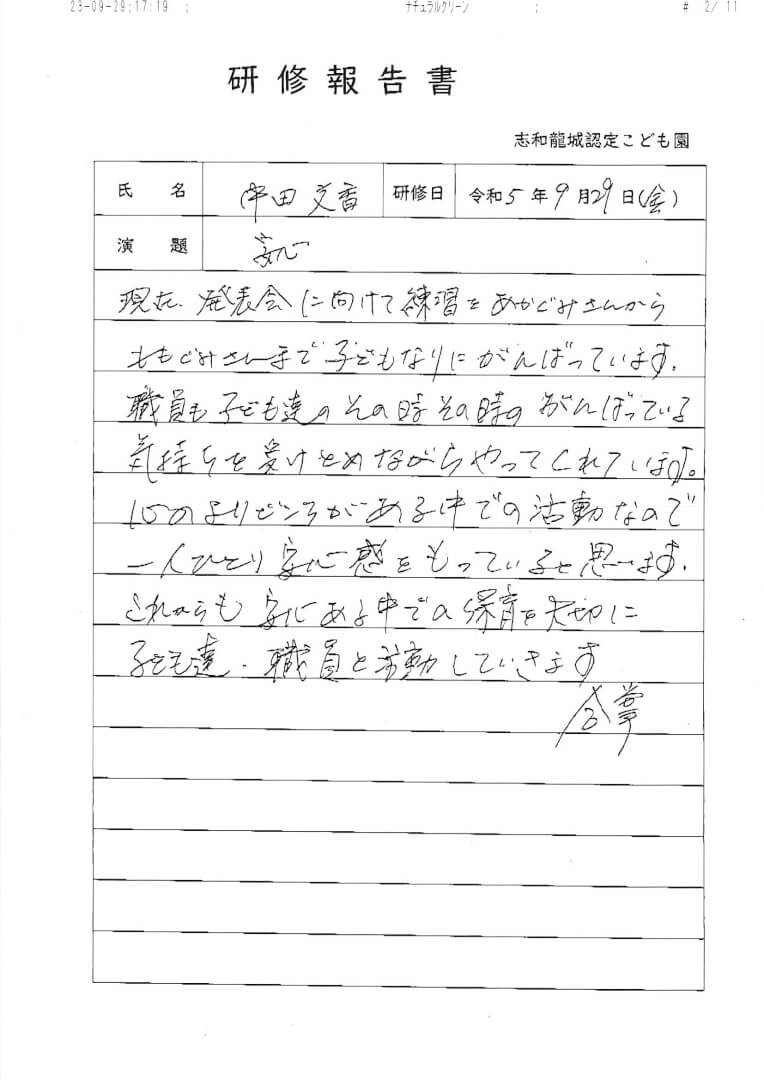 23-09-29;17:19 ; ナチュラルグリーン ; # 2/ 11
研修報告書
志和龍城認定こども園
氏 名 中田 文香 研修日 令和5年9月29日(金)
演 題 安心
現在、発表会に向けて練習をあかぐみさんから
ももぐみさんまで子どもなりにがんばっています。
職員も子ども達のその時その時のがんばっている
気持ちを受けとめながらやってくれています。
心のよりどころがある中での活動なので
一人ひとり安心感をもっていると思います。
これからも安心ある中での保育を大切に
子ども達・職員と活動していきます
合掌